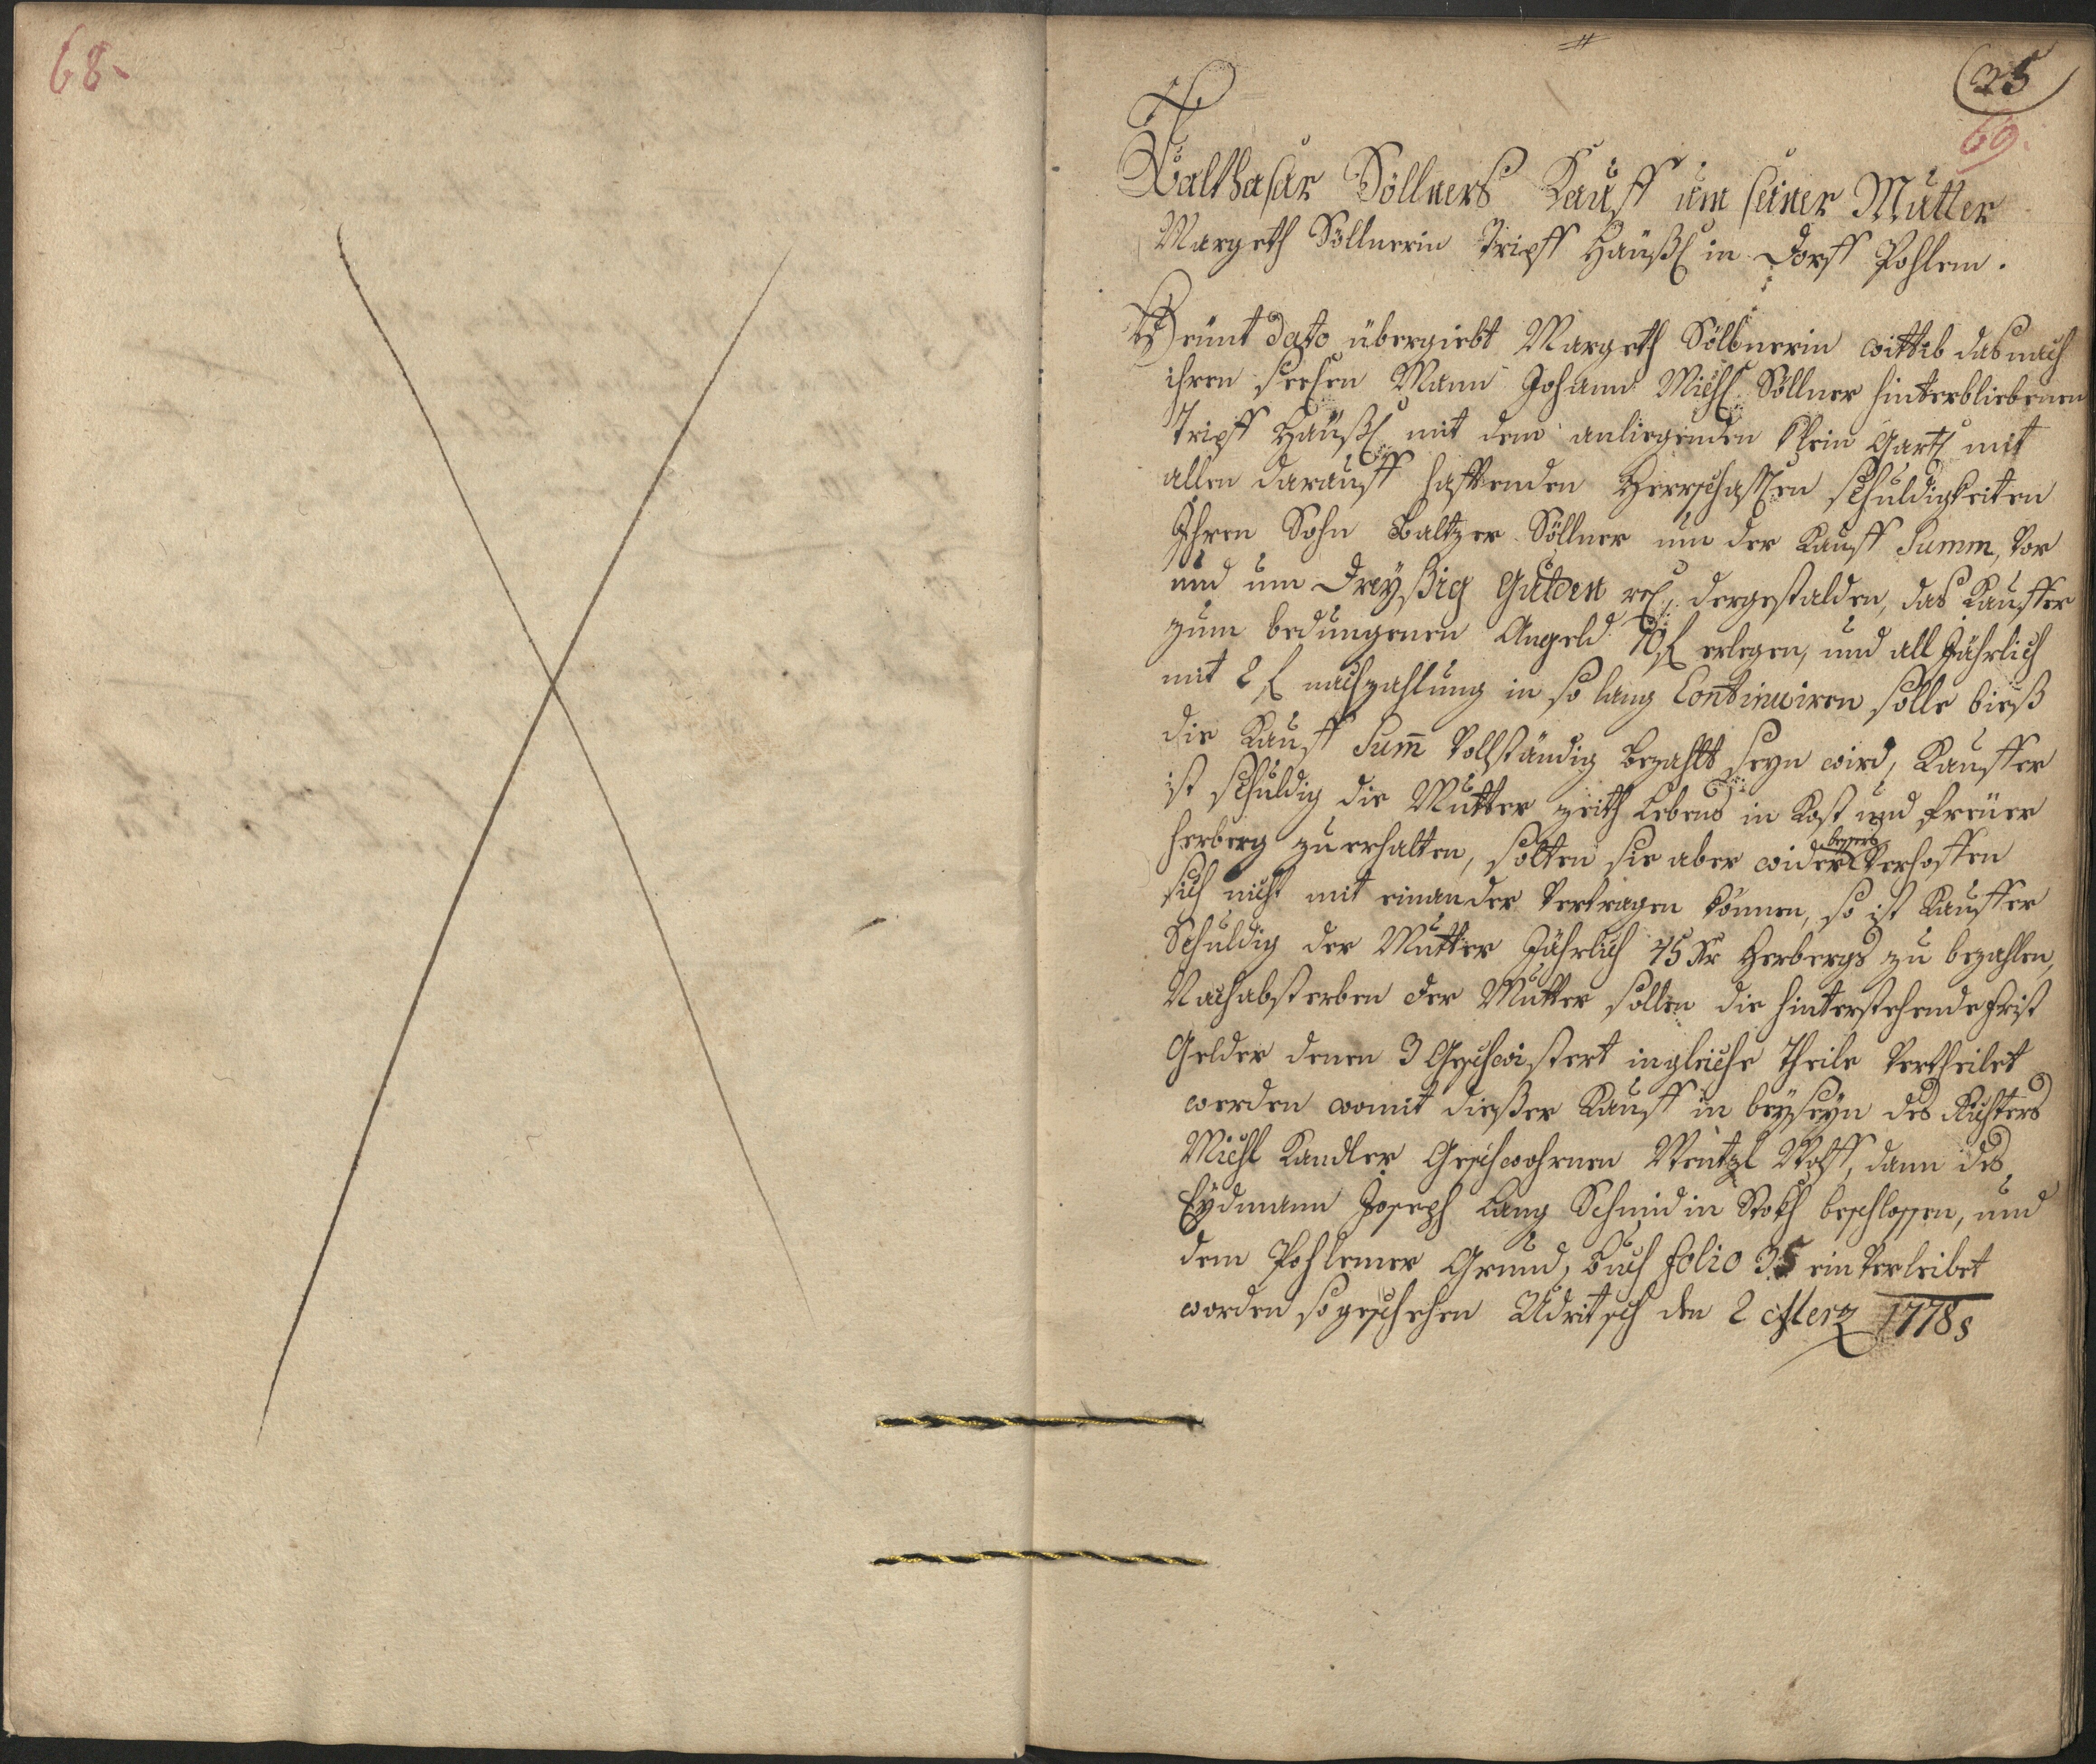 68.
35
69.
Balthasar Söllners Kauff um seiner Mutter
Margeth Söllnerin Tripff Häußl in Dorff Pohlem.
Heünt dato übergiebt Margeth Söllnerin wittib das nach
ihren seehen Mann Johann Michl Söllner hinterbliebenen
Tripff Häußl mit dem anliegenden klein Gartl mit
allen darauff hafftenden Herrschafften schuldigkeiten
Ihren Sohn Baltzer Söllner um der Kauff Summ, vor
und um Dreyßig Gulden dergestalden, das Kauffer
zum bedungenen Angeld 10 f erlegen, und all Jährlich
mit 2 f nachzahlung in so lang Continuiren solle bieß
die Kauff Sum̄ Vollständig bezahlt seyn wird, Kauffer
ist schuldig die Mutter zeith Lebens in Kost und freuer
herberg zu erhalten, solten sie aber wider bessers Verhoffen
sich nicht mit einander Vertragen können, so ist Kauffer
Schuldig der Mutter Jährlich 45 Kr Herbergs zu bezahlen,
Nach absterben der Mutter sollen die hinterstehende frist
Gelder denen 3 Geschwistert in gleiche Theile Vertheilet
werden womit dießer Kauff in beyseyn des Richters
Michl Kandler Geschwohrnen Wentzl Wolff, dann des
Eydmann Joseph Lang Schmid in Stokh beschlossen, und
dem Pohlemer Grund, buch folio 35 ein Verleibet
worden so geschehen Udritsch den 2 Merz 1778